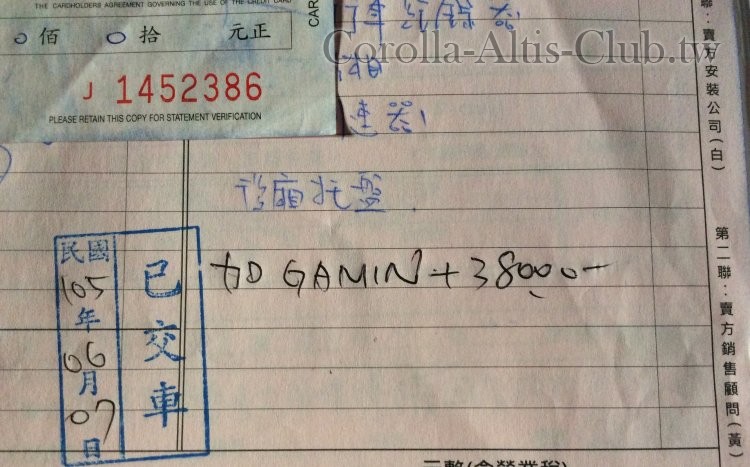 THE CARDHOLDERS AGREEMENT GOVERNING THE USE OF THE CREDIT CARD
佰 拾 元正
J 1452386
PLEASE RETAIN THIS COPY FOR STATEMENT VERIFICATION
CAR
車紀錄器
Corolla-Altis-Club.tw
速器
廂托盤
加 GAMIN + 38000
已交車
民國
105
年
06
月
07
日
聯：賣方安裝公司(白)
第二聯：賣方銷售顧問(黃)
元整(含營業稅)